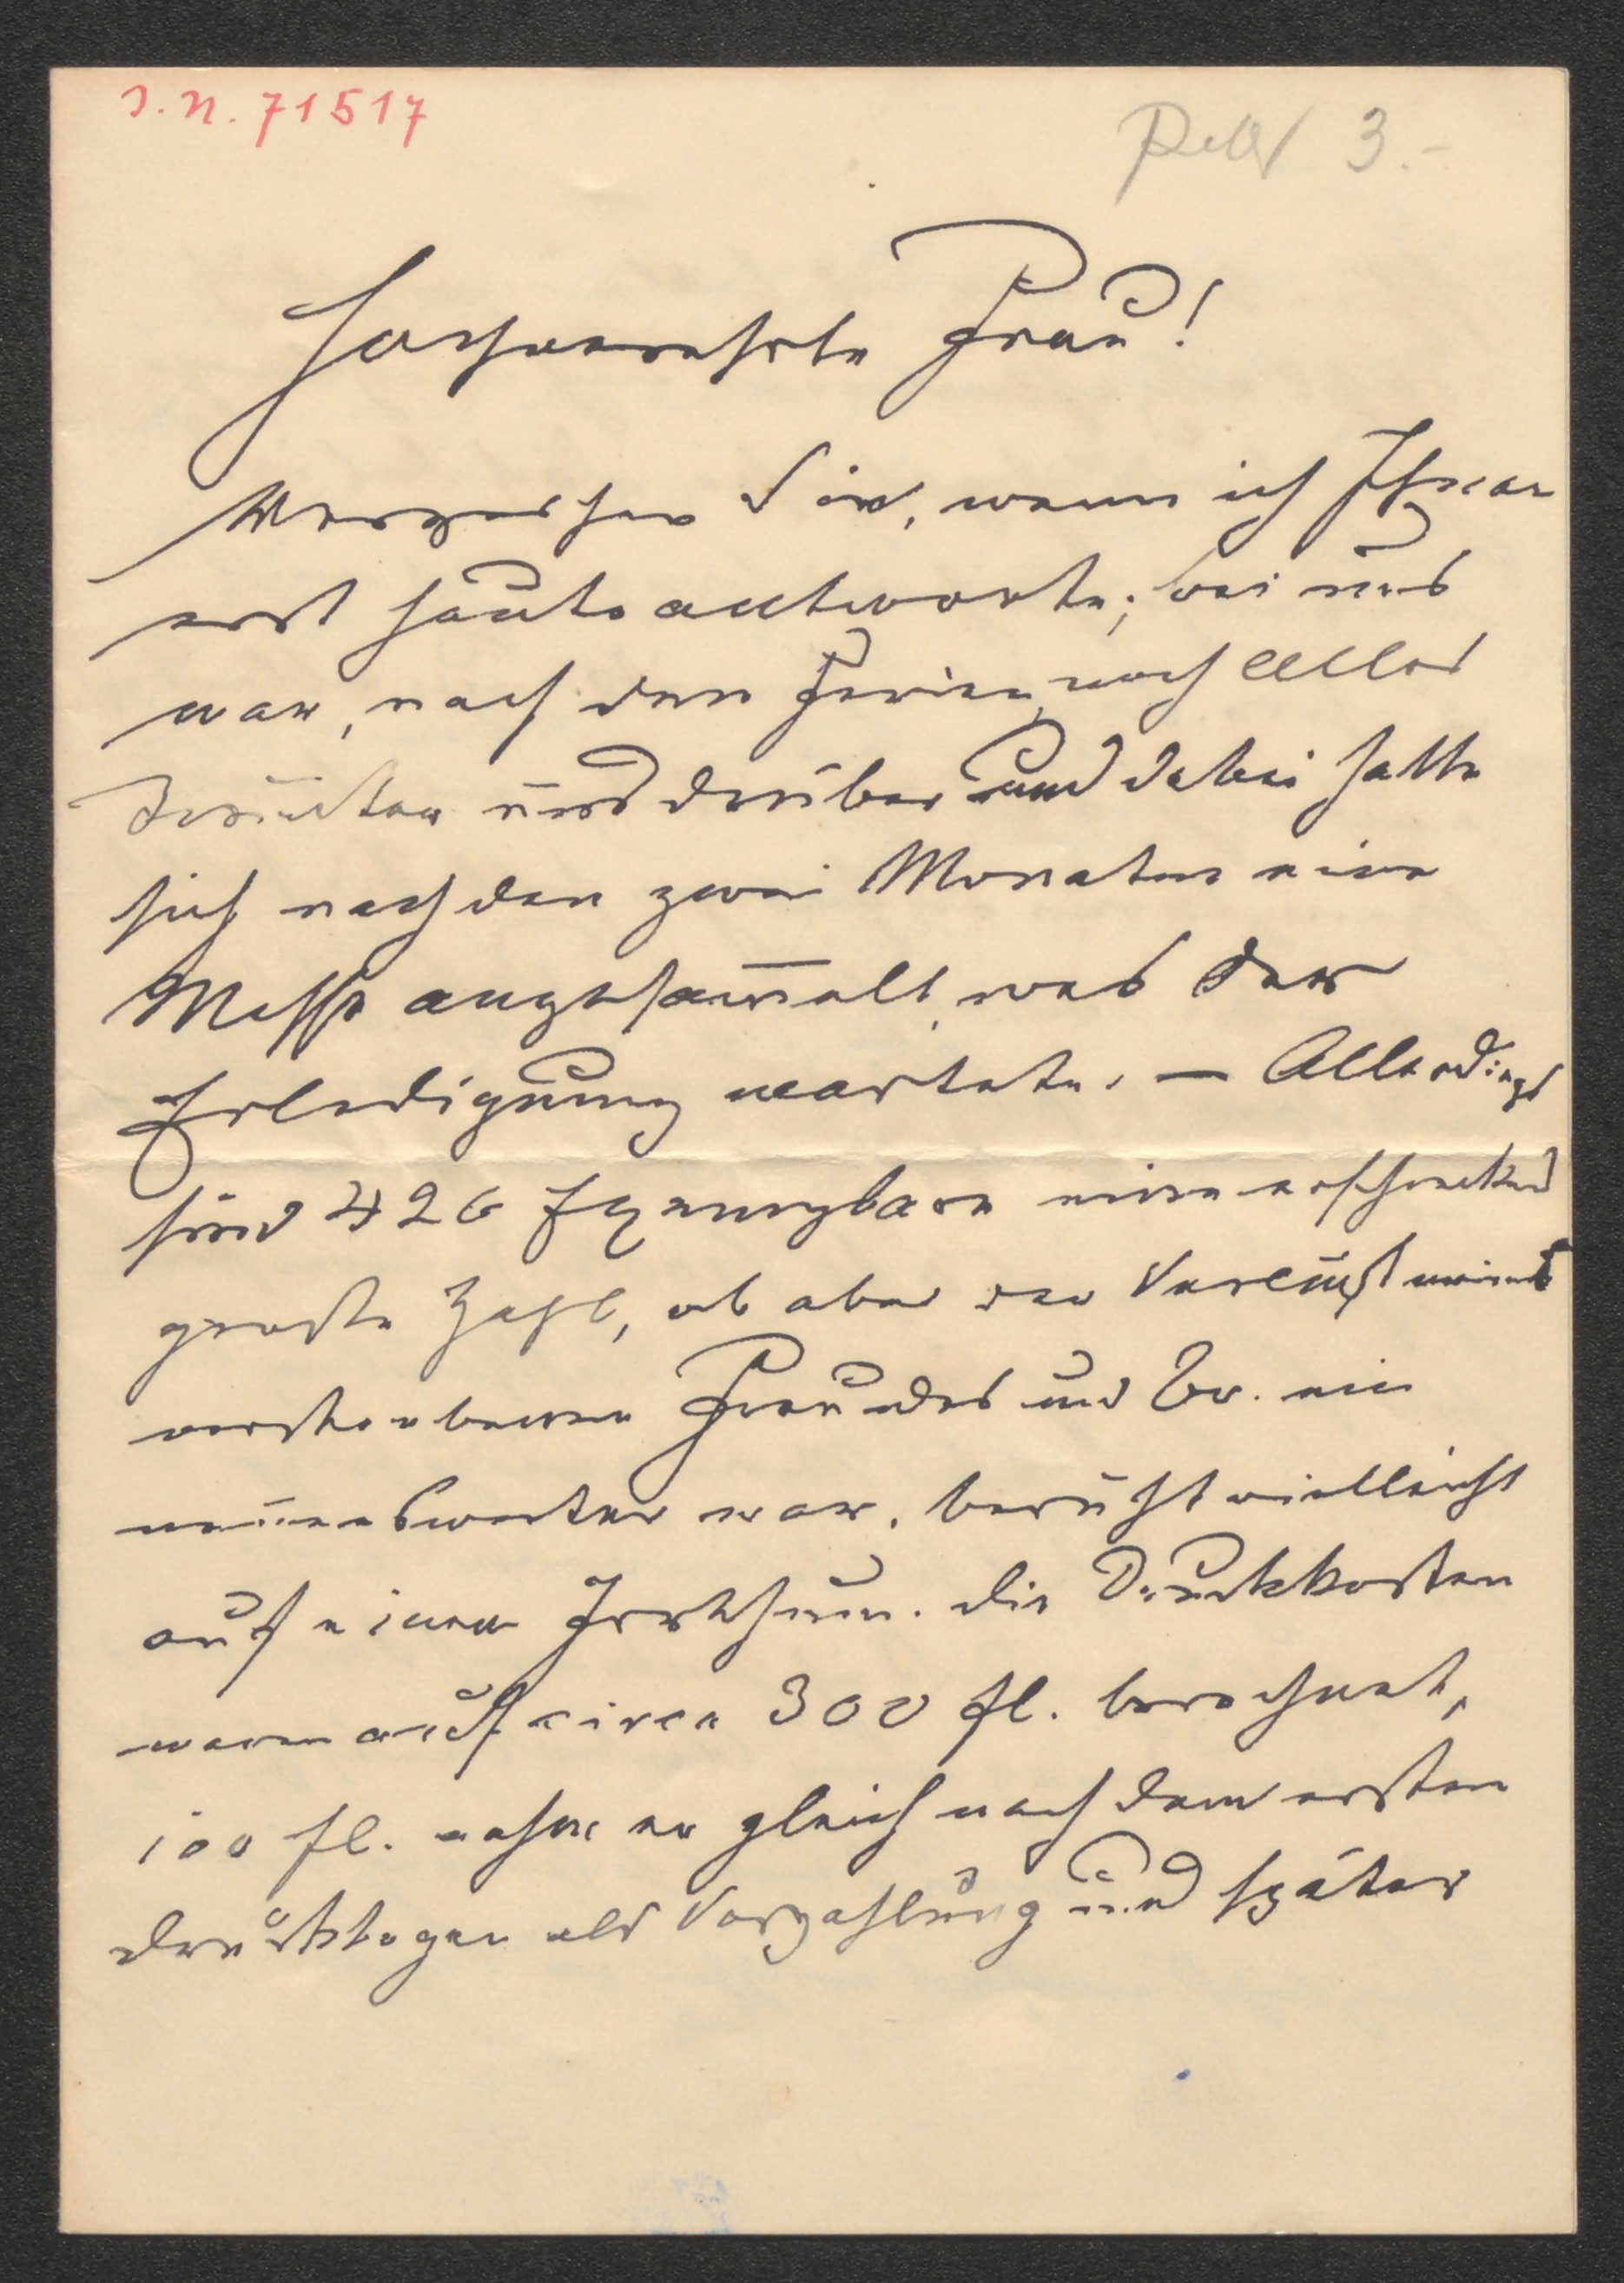 J.N. 71517
3.-
Hochverehrte Frau!
Verzeihen Sie, wenn ich Ihnen
erst heute antworte; bei uns
war, nach den Ferien, noch Alles
drunter und drüber und dabei hatte
sich nach den zwei Monaten eine
Masse angesam̅elt, was der
Erledigung wartete. — Allerdings
sind 426 Exemplare eine erschreckend
große Zahl, ob aber der Verlust meines
verstorbenen Freundes und Br. ein
nen̅enswerter war, beruht vielleicht
auf einem Irrthum. Die Druckkosten
waren auf circa 300 fl. berechnet,
100 fl. nahm er gleich nach dem ersten
als Vorzahlung und später